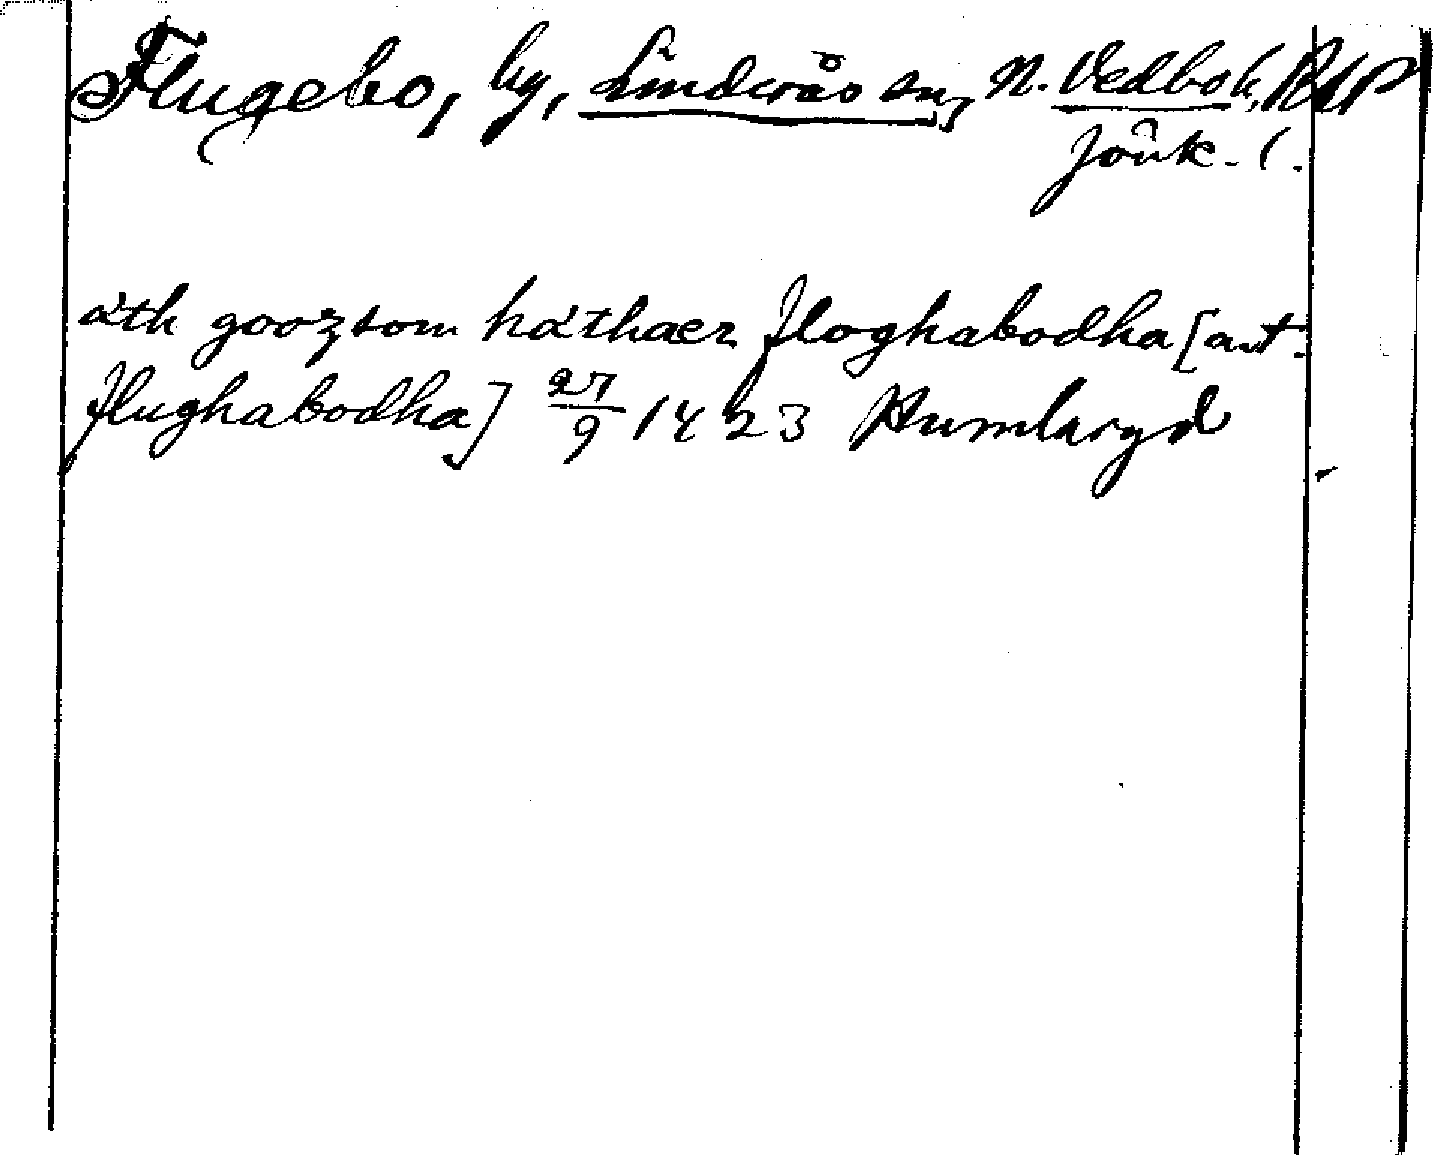 Flugebo, by, Linderås sn, N. Vedbo h,
Jönk. l.
äth gooz som häthaer floghabodha [ant.
flughabodha] 27/9 1423 Humlaryd